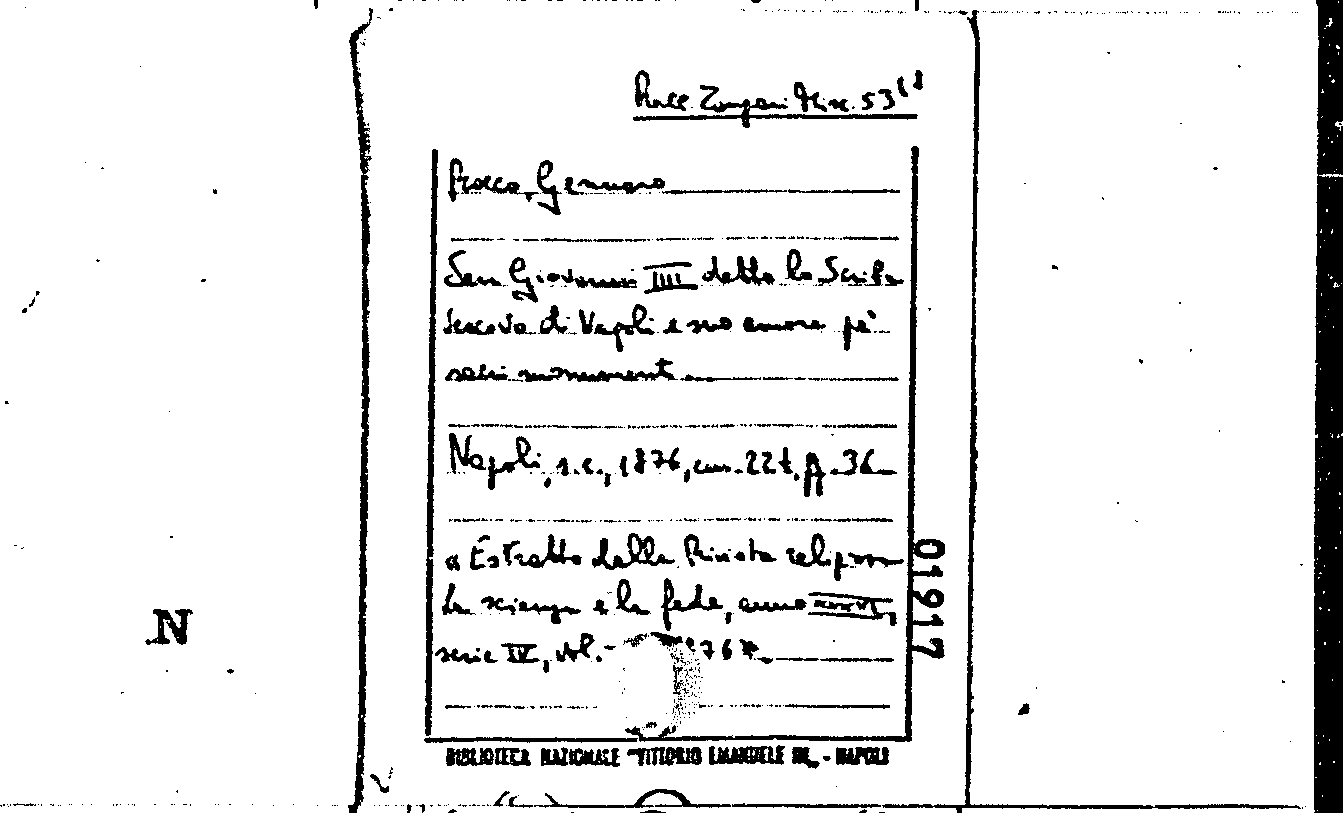 Racc. Zangari Misc. 53
Gennaro
San Giovanni IIII detto lo Scriba
vescovo di Napoli e suo amore pe'
sacri monumenti
Napoli, s.e., 1876, cm. 22 p. 36
« Estratto dalla Rivista religiosa
La scienza e la fede, anno XXXVI,
serie IV, vol. 76 ».
01917
N
BIBLIOTECA NAZIONALE "VITTORIO EMANUELE III" - NAPOLI